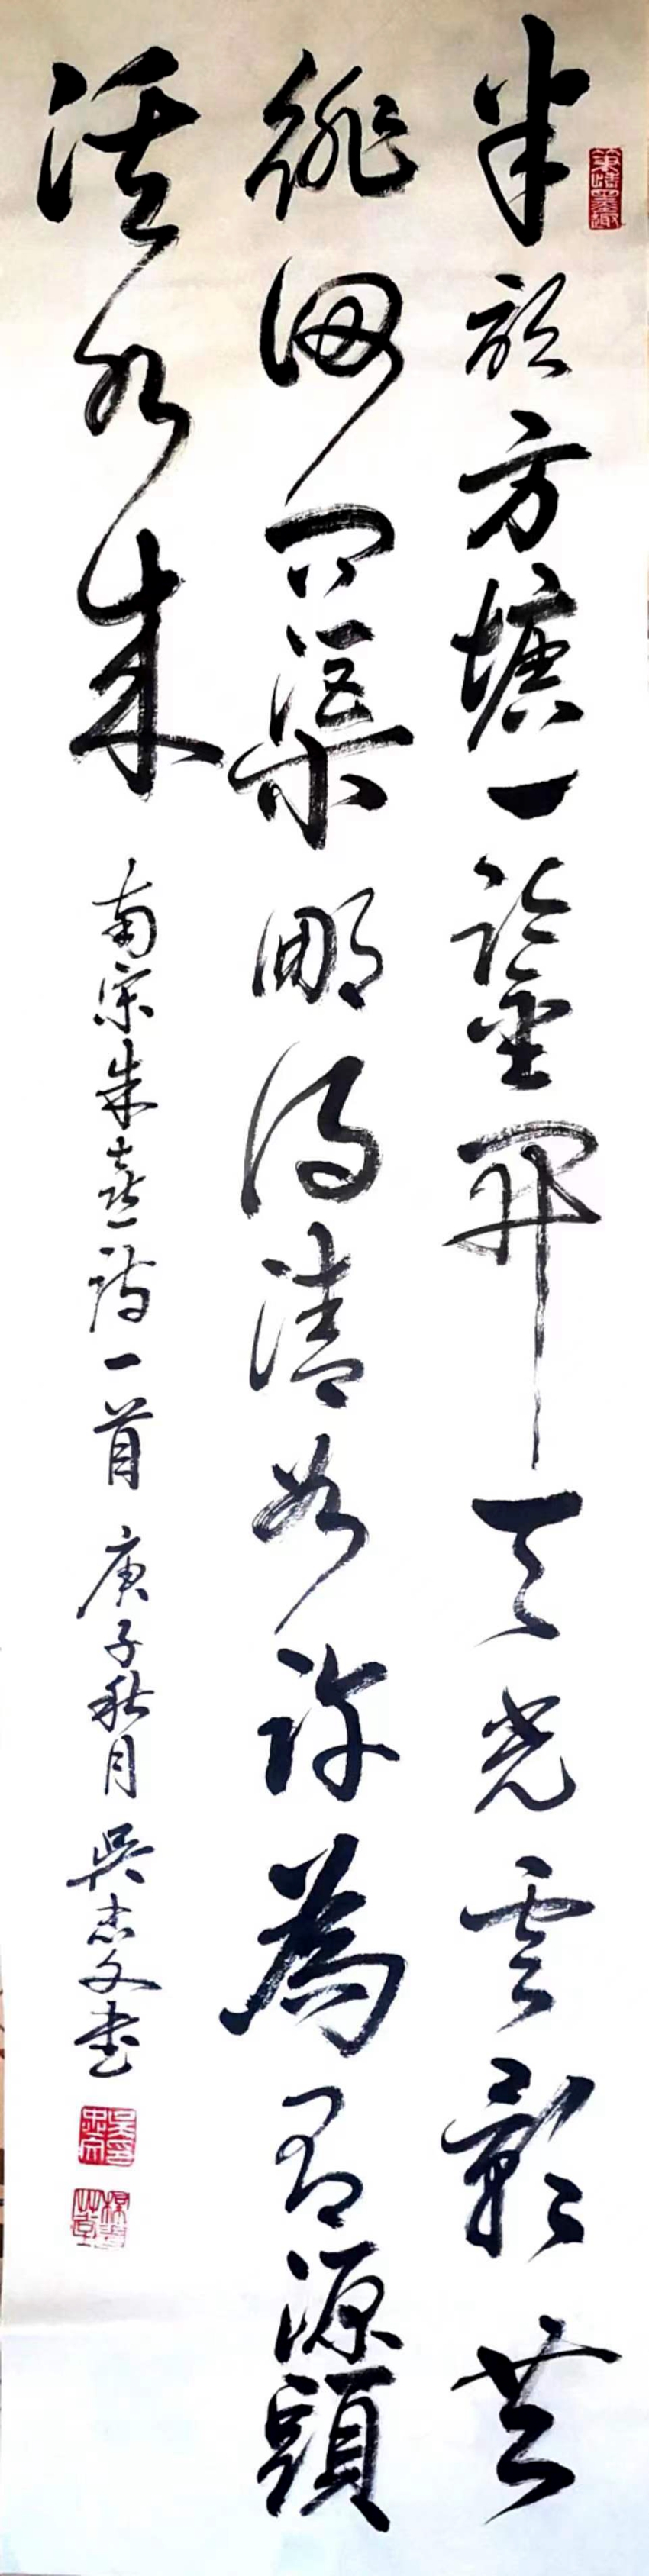 筆情墨趣
半畝方塘一鑑開天光雲影共
徘徊問渠那得清如許為有源頭
活水來 南宋朱熹詩一首 庚子秋月 吳忠文書
吳印忠文